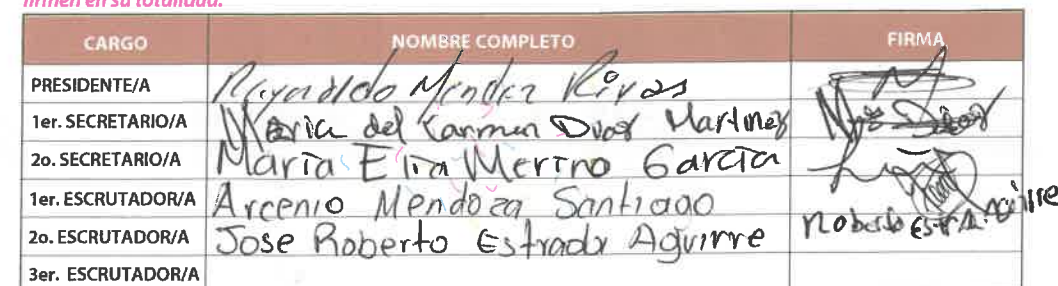 firmen en su totalidad.
CARGO NOMBRE COMPLETO FIRMA
PRESIDENTE/A Reynaldo Mendez Rivas
1er. SECRETARIO/A Maria del Carmen Diaz Martinez
2o. SECRETARIO/A Maria Elia Merino Garcia
1er. ESCRUTADOR/A Arcenio Mendoza Santiago
2o. ESCRUTADOR/A Jose Roberto Estrada Aguirre Roberto Estrada Aguirre
3er. ESCRUTADOR/A